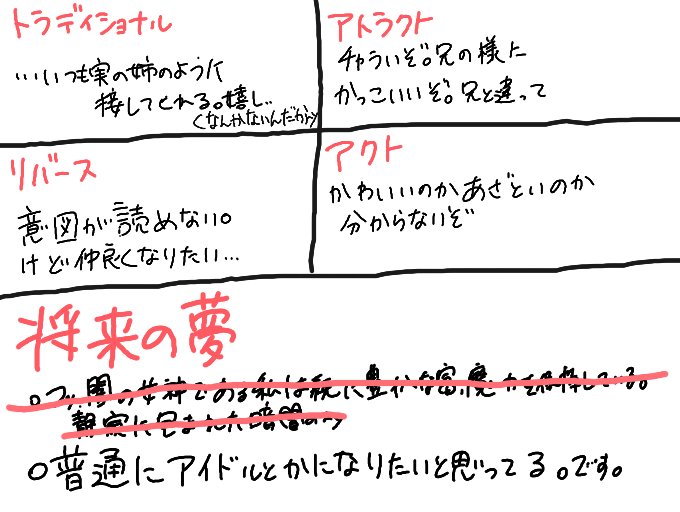 トラディショナル
…いつも実の姉のように
接してくれる。嬉し..
くなんかないんだから
アトラクト
チャラいぞ。兄の様に
かっこいいぞ。兄と違って
リバース
意図が読めない。
けど仲良くなりたい…
アクト
かわいいのかあざといのか
分からないぞ
将来の夢
の女神である私は
静寂に包まれた暗闇から
○普通にアイドルとかになりたいと思ってる。です。